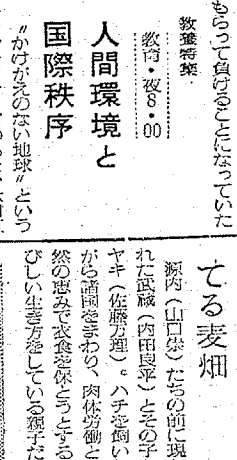 もらって負けることになっていた
教養特集
教育・夜8・00
人間環境と
国際秩序
〝かけがえのない地球〟という
てる麦畑
源内(山口崇)たちの前に現
れた武蔵(内田良平)とその子
ヤキ(佐藤万理)。ハチを飼い
がら諸国をまわり、肉体労働と
然の恵みで衣食を保とうとする
びしい生き方をしている親子だ